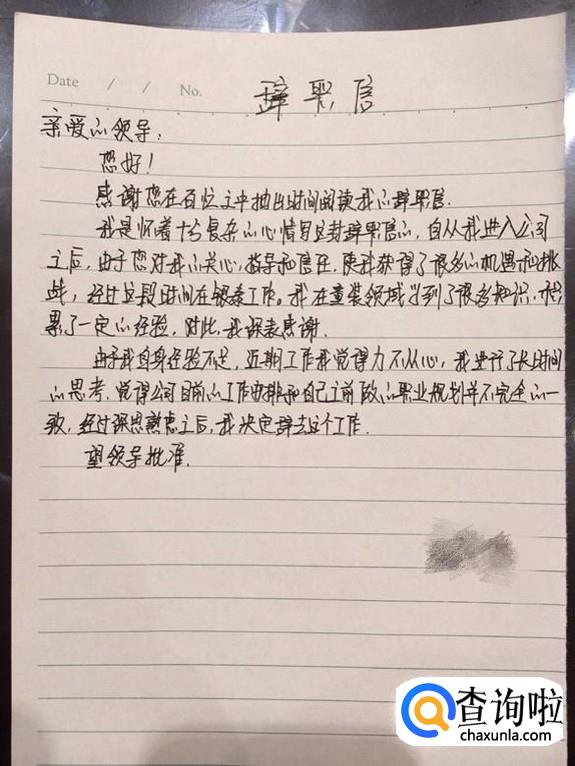 Date / / No. 辞职信
亲爱的领导:
您好!
感谢您在百忙之中抽出时间阅读我的辞职信.
我是怀着十分复杂的心情写这封辞职信的,自从我进入公司
之后,由于您对我的关心,指导和信任,使我获得了很多的机遇和挑
战,经过这段时间在银泰工作.我在童装领域学到了很多知识,积
累了一定的经验,对此,我深表感谢.
由于我自身经验不足,近期工作我觉得力不从心,我进行了长时间
的思考,觉得公司目前的工作安排和自己之前做的职业规划并不完全的一
致,经过深思熟虑之后,我决定辞去这个工作.
望领导批准.
查询啦
chaxunla.com